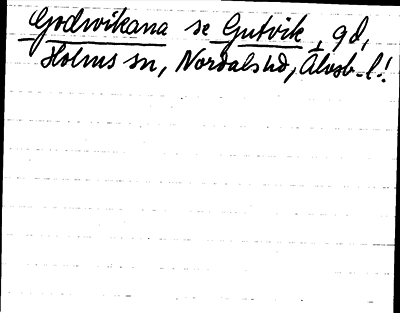 Godwikana se Gutvik, gd,
Holms sn, Nordals hd, Älvsb. l!